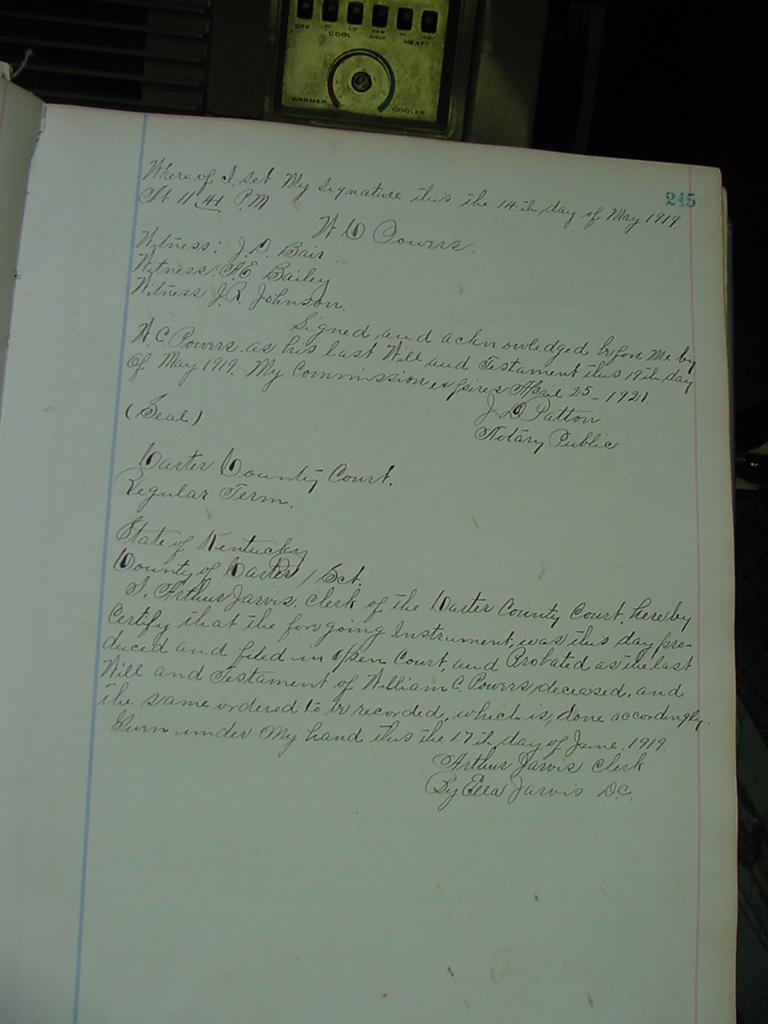 OFF HI LO FAN ONLY HI LO
COOL HEAT
WARMER COOLER
245
Where of I set My signature this the 14th, day of May 1919.
At 11 41 P.M
W C Powers.
Witness: J.D. Bair
Witness: H.E. Bailey
Witness J.R. Johnson.
Signed, and acknowledged before Me by
W.C. Powers, as his last Will and Testament this 19th, day
of May 1919. My Commission expires April 25 - 1921.
J D Patton
(Seal)
Notary Public
Carter County Court.
Regular Term.
State of Kentucky
County of Carter / Sct.
I, Arthur Jarvis, Clerk of the Carter County Court, hereby
Certify that the for going Instrument, was this day pro-
duced and filed in open Court, and Probated as the last
Will and Testament of William C. Powers, deceased, and
the same ordered to be recorded, which is, done accordingly.
Given under My hand this the 17th, day of June, 1919.
Arthur Jarvis Clerk
By Ella Jarvis D.C.